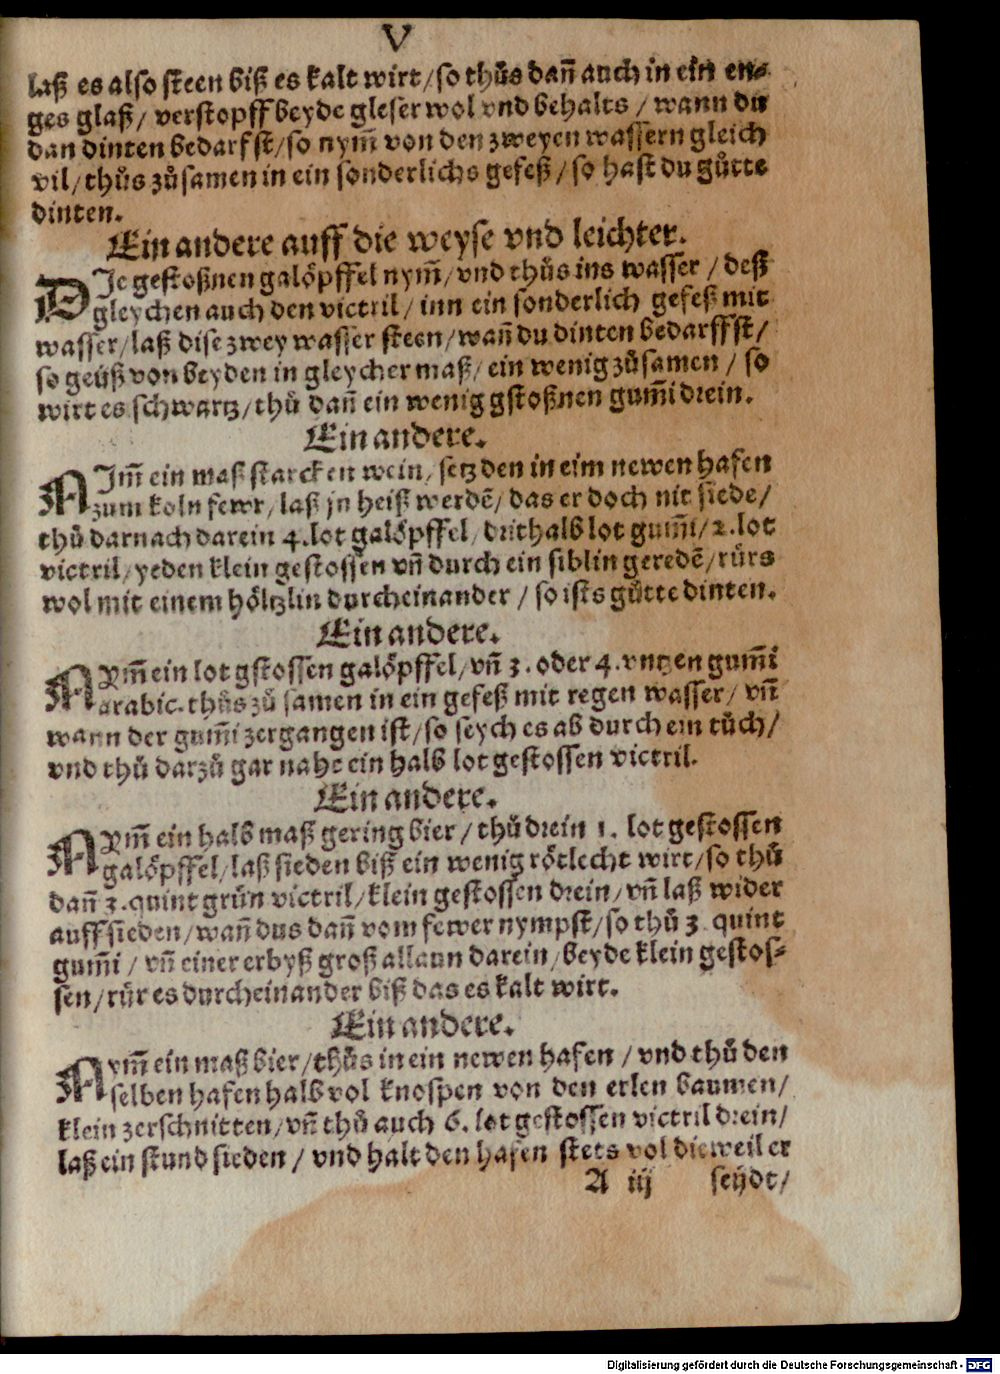 V
laß es also steen biß es kalt wirt/so thůs dañ auch in ein en⸗
ges glaß/ verstopff beyde gleser wol vnd behalts / wann du
dan dinten bedarfst/so nym̃ von den zweyen wassern gleich
vil/thůs zůsamen in ein sonderlichs gefeß/so hast du gůtte
dinten.
Ein andere auff die weyse vnd leichter.
DJe gestoßnen galöpffel nym̃/vnd thůs ins wasser / deß
gleychen auch den victril/ inn ein sonderlich gefeß mit
wasser/laß dise zwey wasser steen/wañ du dinten bedarffst/
so geüß von beyden in gleycher maß/ein wenig zůsamen / so
wirt es schwartz/thů dañ ein wenig gstoßnen gum̃i drein.
Ein andere.
NJm̃ ein maß starcken wein/setz den in eim newen hafen
zum koln fewr/laß jn heiß werdẽ/das er doch nit siede/
thů darnach darein 4.lot galöpffel/drithalb lot gum̃i/2.lot
victril/yeden klein gestossen vñ durch ein siblin geredẽ/rürs
wol mit einem höltzlin durcheinander / so ists gůtte dinten.
Ein andere.
NYm̃ ein lot gstossen galöpffel/vñ 3.oder 4.vntzen gum̃i
arabic.thůs zů samen in ein gefeß mit regen wasser/ vñ
wann der gum̃i zergangen ist/so seych es ab durch ein tůch/
vnd thů darzů gar nahe ein halb lot gestossen victril.
Ein andere.
NYm̃ ein halb maß gering bier/thů drein 1. lot gestossen
galöpffel/laß sieden biß ein wenig rötlecht wirt/so thů
dañ 3.quint grün victril/klein gestossen drein/vñ laß wider
auff sieden/wañ dus dañ vom fewer nympst/so thů 3 quint
gum̃i / vñ einer erbyß groß allaun darein/beyde klein gestos⸗
sen/rür es durcheinander biß das es kalt wirt.
Ein andere.
Nym̃ ein maß bier/thůs in ein newen hafen /vnd thů den
selben hafen halb vol knospen von den erlen baumen/
klein zerschnitten/vñ thů auch 6. lot gestossen victril drein/
laß ein stund sieden / vnd halt den hafen stets vol dieweil er
A iij seydt/
Digitalisierung gefördert durch die Deutsche Forschungsgemeinschaft - DFG